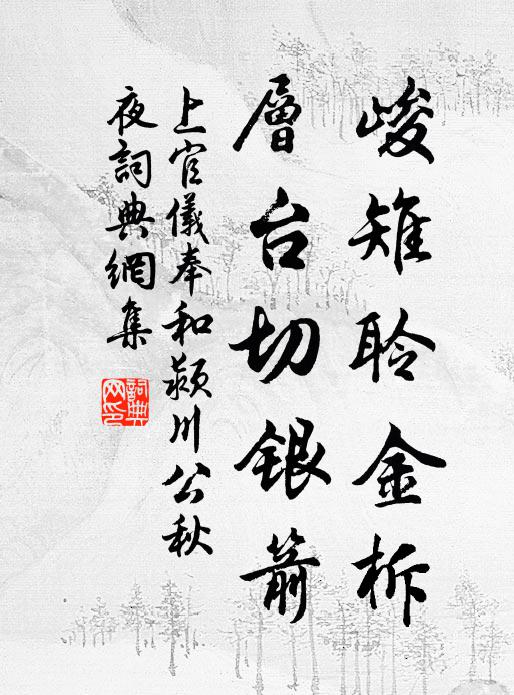 峻雉聆金柝
層台切銀箭
上官儀奉和潁川公秋
夜詞典網集
詞典網印